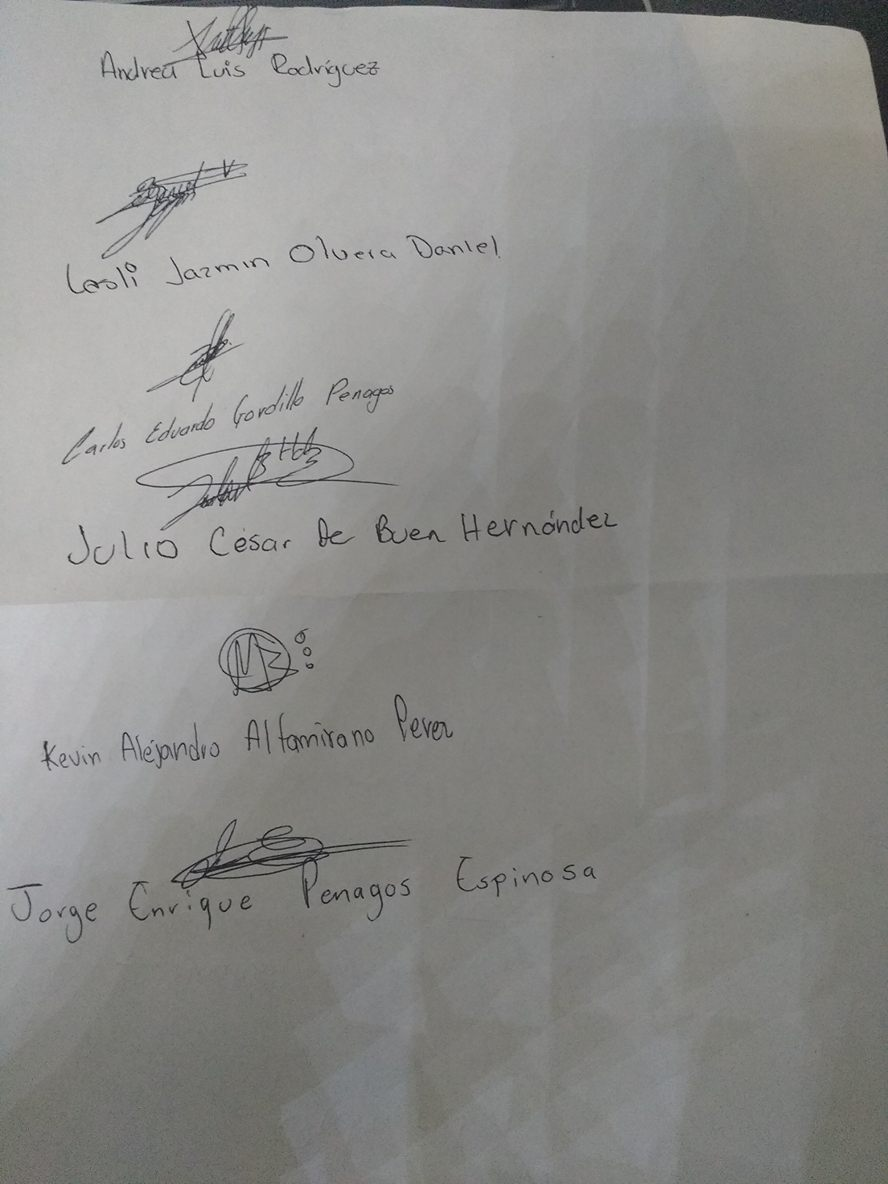 Andrea Luis Rodríguez
Lesli Jazmin Olvera Daniel
Carlos Eduardo Gordillo Penagos
Julio César De Buen Hernández
MB
Kevin Alejandro Altamirano Perez
Jorge Enrique Penagos Espinosa